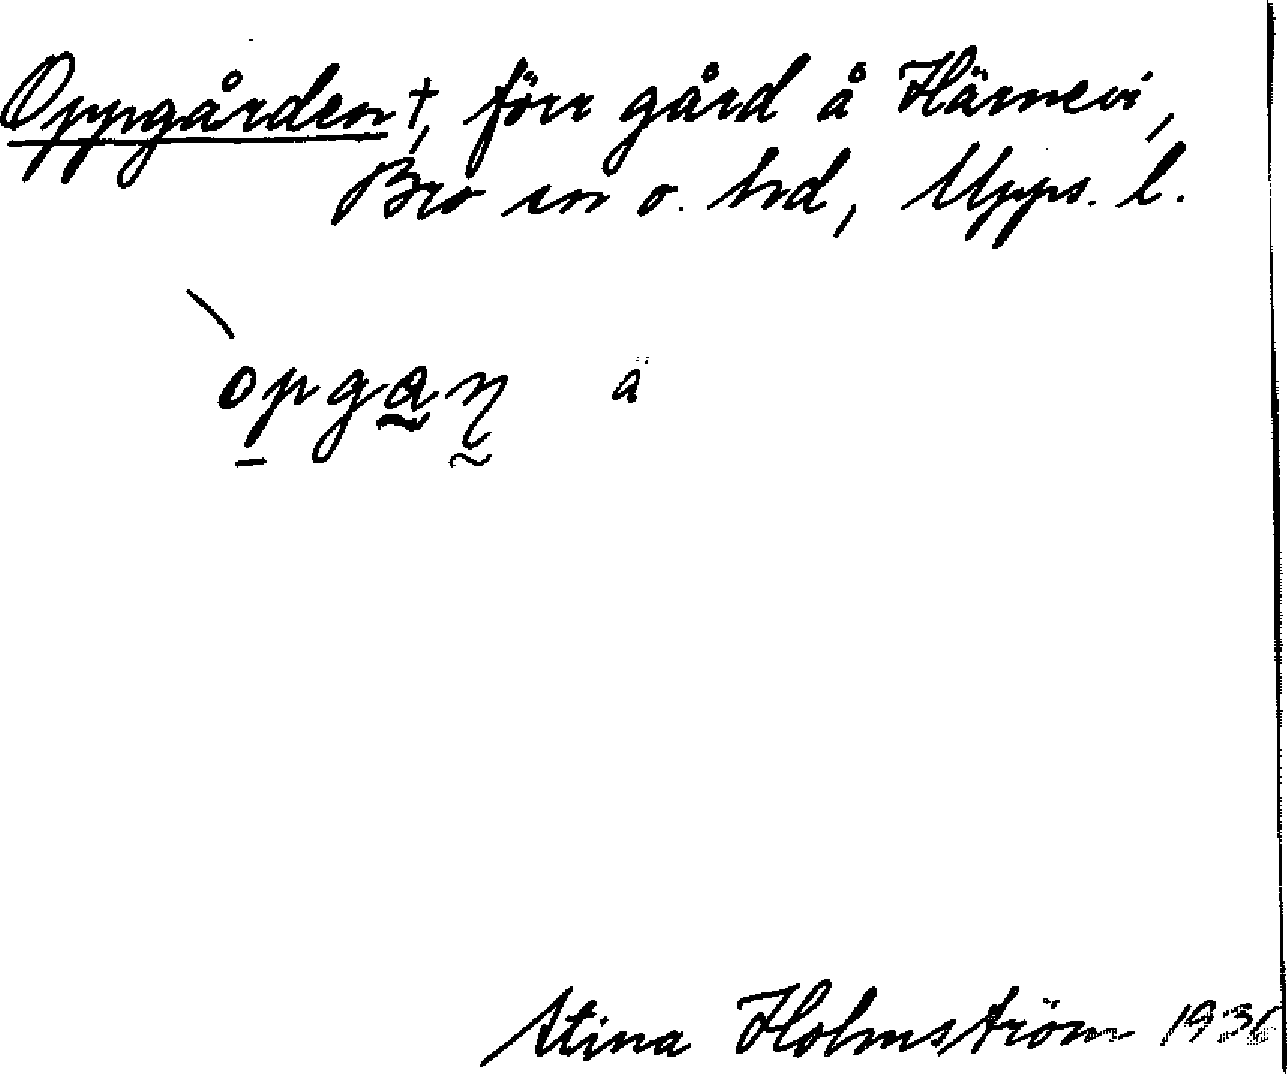 Oppgården †, förr gård å Härnevi,
Bro sn o. hd, Upps. l.
opgaɳ ä
Stina Holmström 1936